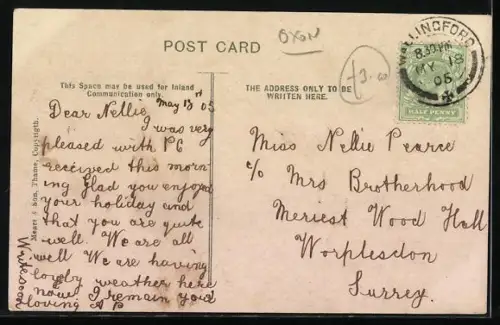 OXON
POST CARD
£3.00
WALLINGFORD
8.30 PM
MY 13
05
HALF PENNY
This Space may be used for Inland
Communication only.
THE ADDRESS ONLY TO BE
WRITTEN HERE.
May 13th 05
Dear Nellie
I was very
pleased with PC
received this morn-
ing Glad you enjoyed
your holiday and
that you are quite
well. We are all
well We are having
lovely weather here
now. I remain your
loving A P
Write soon
Miss Nellie Pearce
c/o Mrs Brotherhood
Merrist Wood Hall
Worplesdon
Surrey.
& Son, Thame, Copyright.